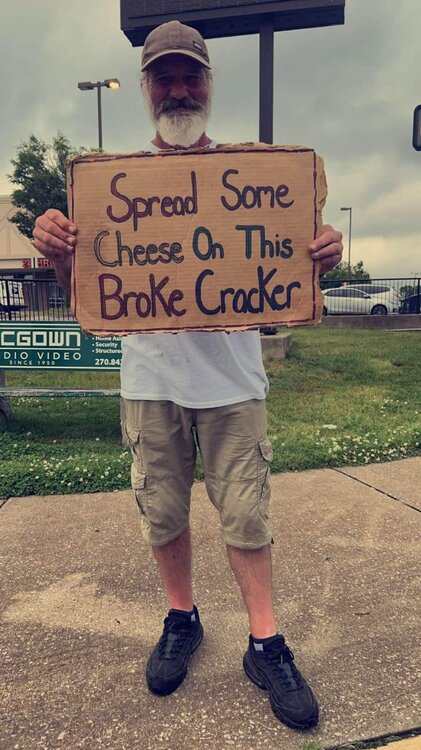 Spread Some
Cheese On This
Broke Cracker
CGOWN
DIO VIDEO
SINCE 1950
• Security
• Structured
270.84